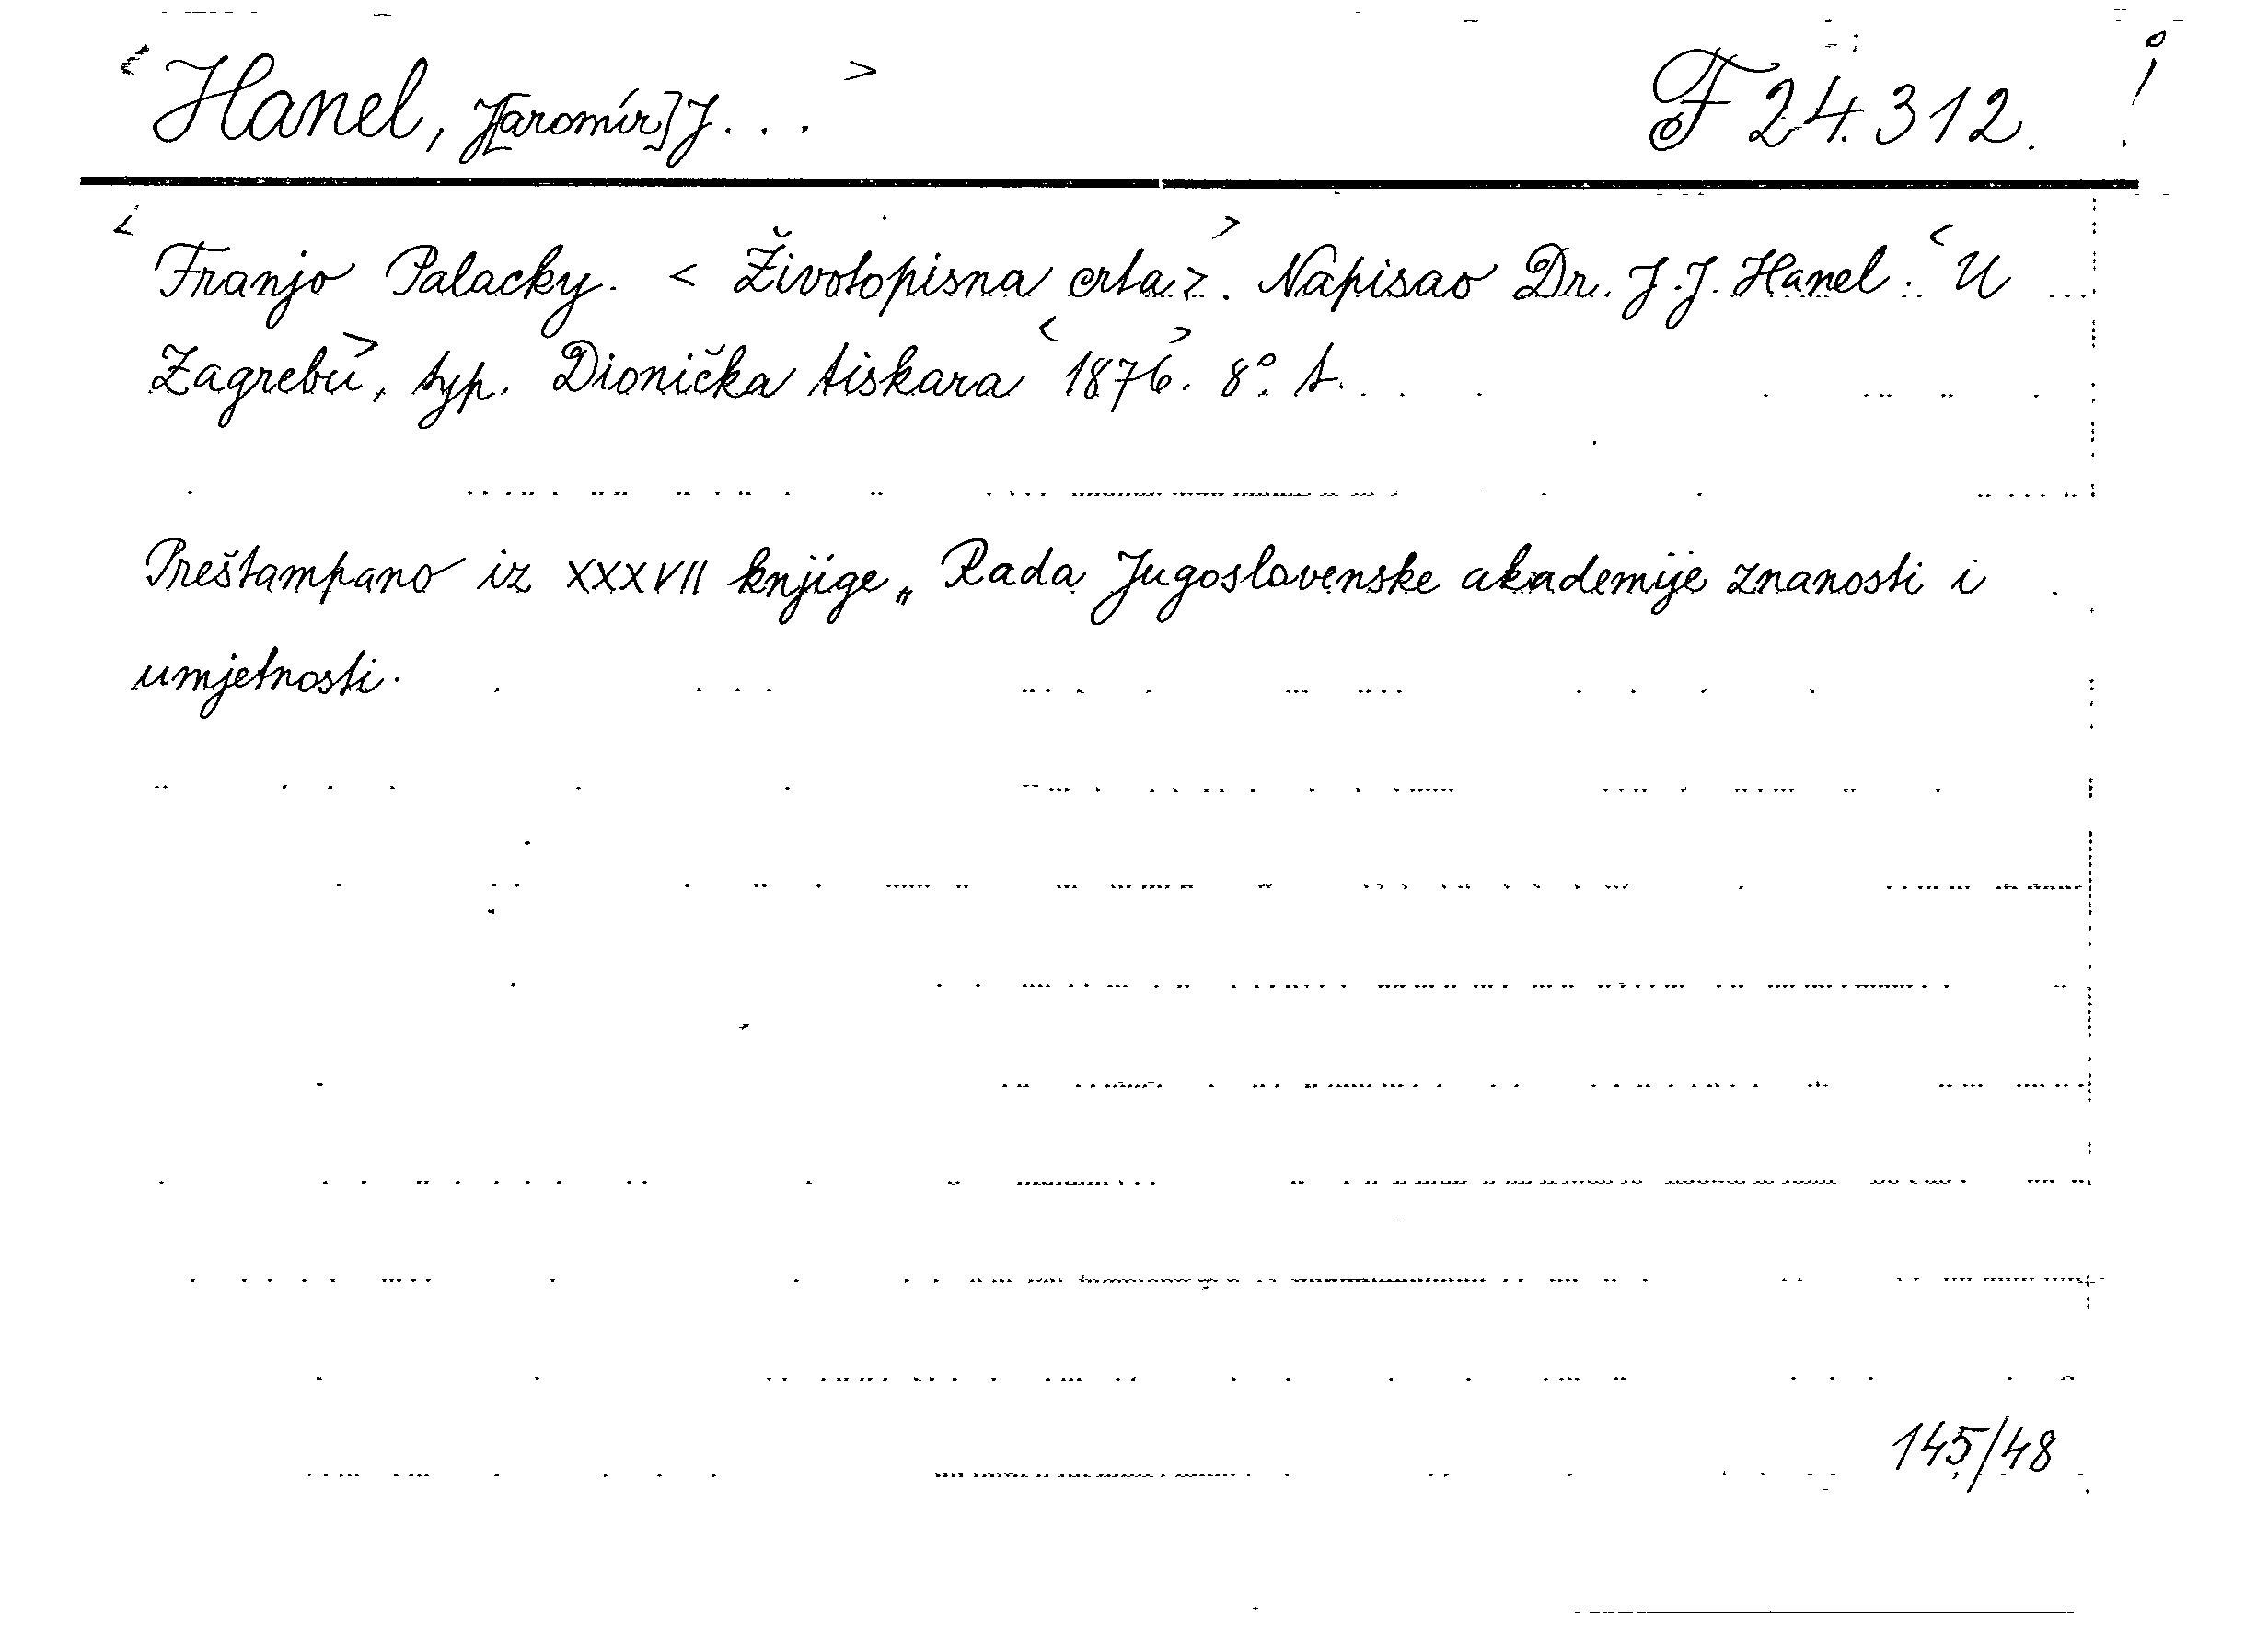 < Hanel, J[aromír] J... > F 24.312.
< Franjo Palacky. < Životopisna crta >. > Napisao Dr. J. J. Hanel. < U
Zagrebu >, typ. Dionička tiskara < 1876 >. 8°.
Preštampano iz XXXVII knjige „Rada Jugoslavenske akademije znanosti i
umjetnosti.
145/48